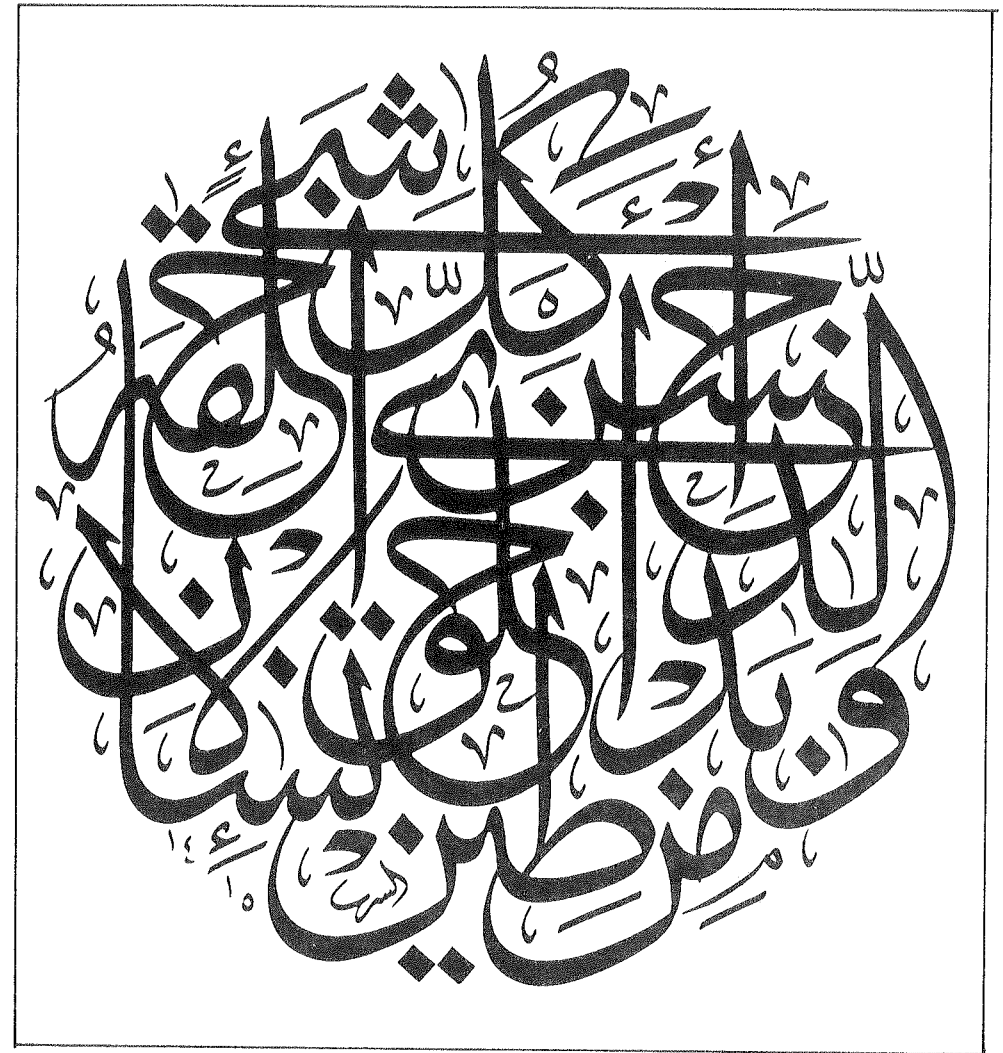 الَّذِي أَحْسَنَ كُلَّ شَيْءٍ خَلَقَهُ وَبَدَأَ خَلْقَ الْإِنسَانِ مِن طِينٍ
١٤
١٥